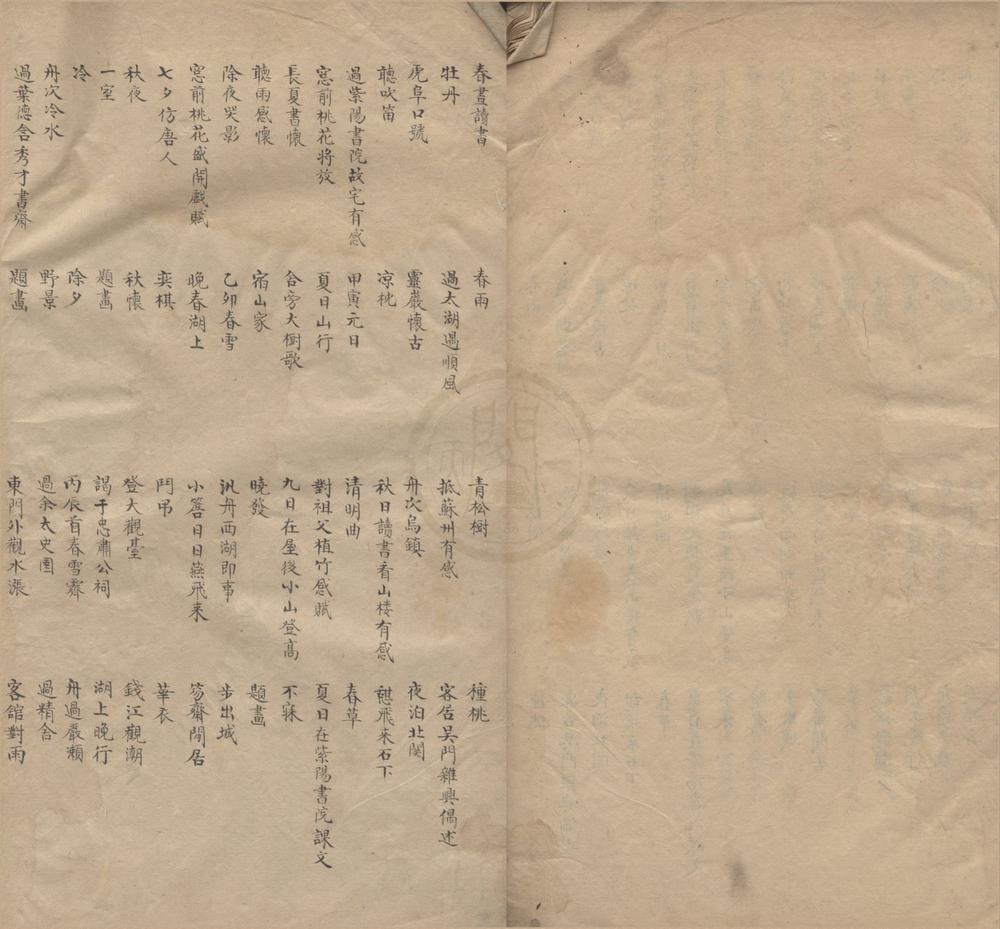 春晝讀書 春雨 青松樹 種桃
牡丹 過太湖遇順風 抵蘇州有感 客居吴門雜興偶述
虎阜口號 靈巖懷古 舟次烏鎮 夜泊北関
聽吹笛 凉枕 秋日讀書看山楼有感 憇飛来石下
過紫陽書院故宅有感 甲寅元日 清明曲 春草
窓前桃花將放 夏日山行 對祖父植竹感賦 夏日在紫陽書院課文
長夏書懷 舍旁大樹歌 九日在屋後小山登高 不寐
聽雨感懷 宿山家 曉發 題畫
除夜哭影 乙夘春雪 汎舟西湖即事 步出城
窓前桃花盛開戱賦 晚春湖上 小簷日日燕飛来 笏齋閒居
七夕仿唐人 奕棋 華衣
秋夜 秋懷 登大觀臺 錢江觀潮
一室 題畫 謁于忠肅公祠 湖上晚行
冷 除夕 丙辰首春雪霽 舟過嚴瀨
舟次冷水 野景 過余太史園 過精舍
過葉德舍秀才書齋 題畫 東門外觀水漲 客舘對雨